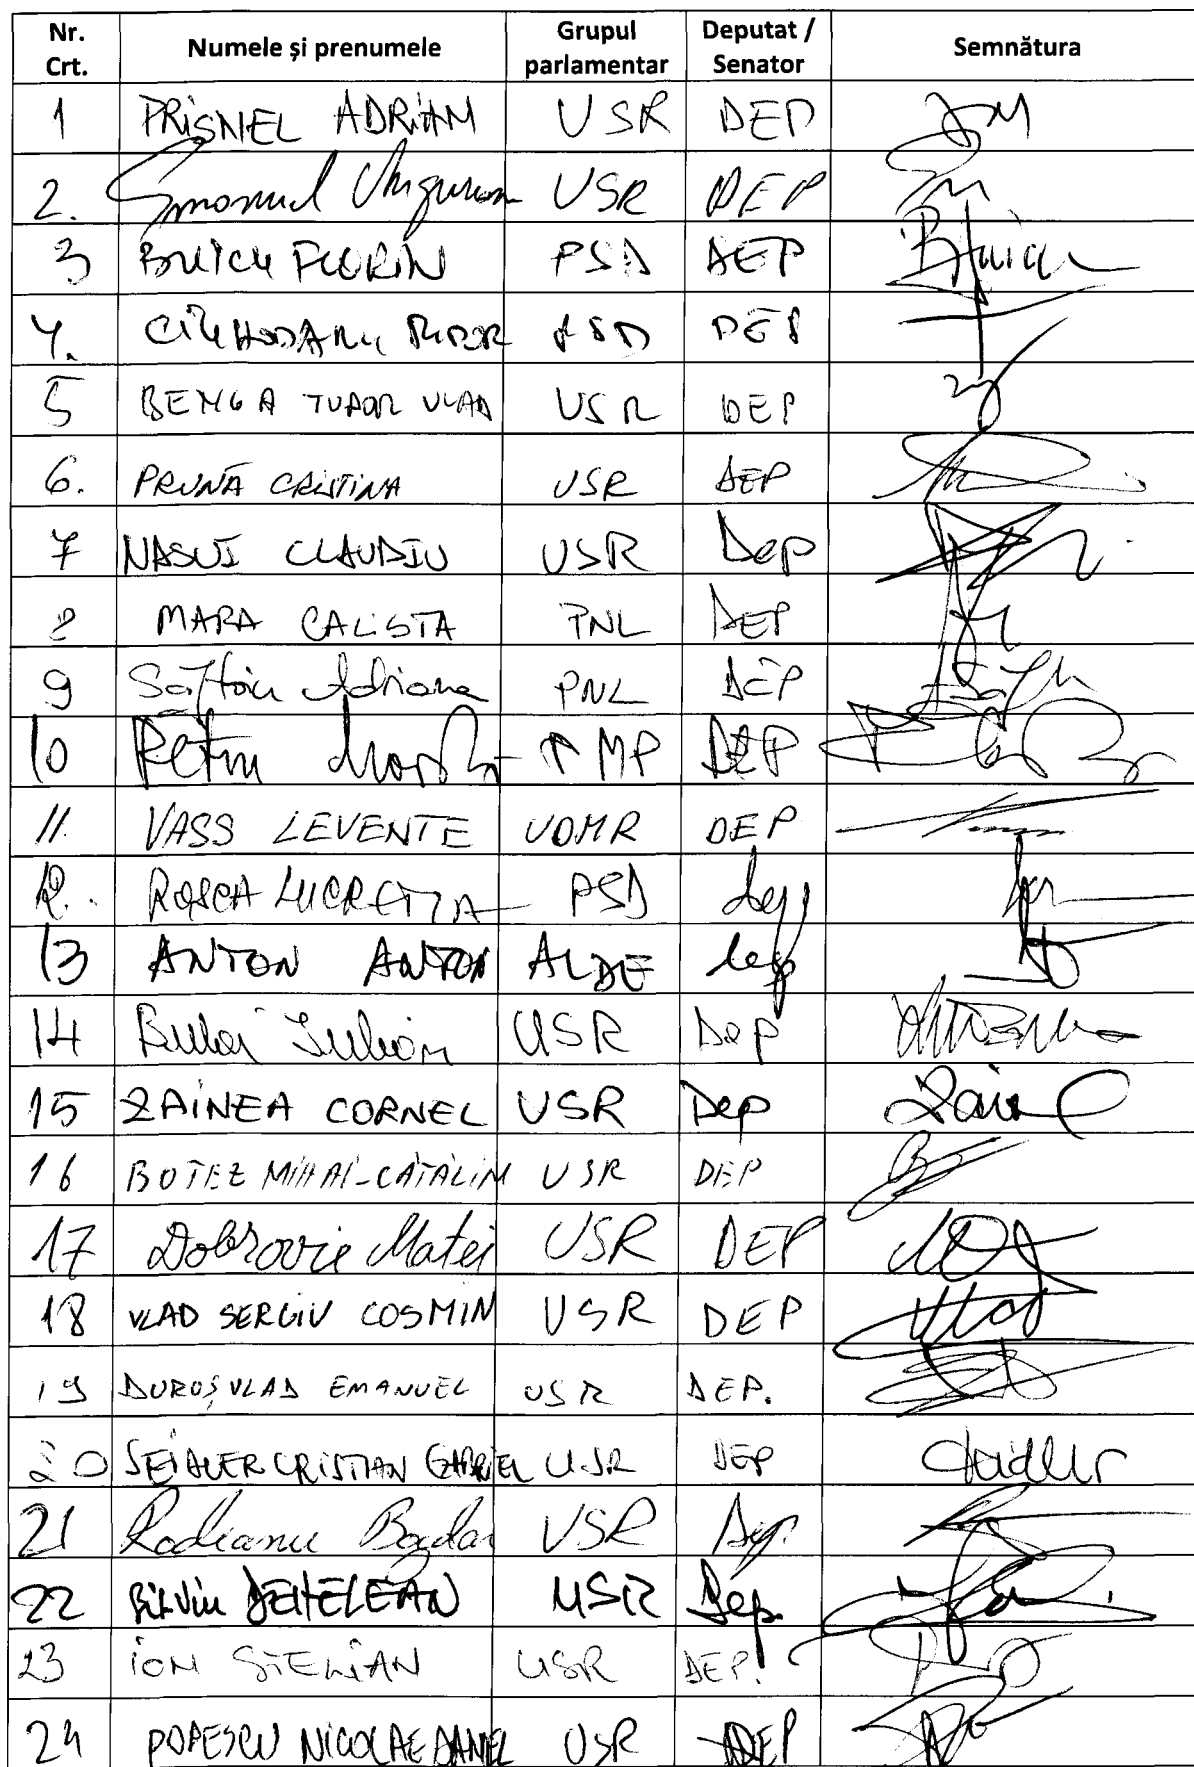 Nr. Crt. Numele și prenumele Grupul parlamentar Deputat / Senator Semnătura
1 PRISNEL ADRIAN USR DEP
2. Emanuel Ungureanu USR DEP
3 BUICU FLORIN PSD DEP Buicu
4. CIUHODARU TUDOR PSD DEP
5 BENGA TUDOR VLAD USR DEP
6. PRUNĂ CRISTINA USR DEP
7 NASUI CLAUDIU USR Dep
8 MARA CALISTA PNL DEP
9 Săftoiu Adriana PNL DEP
10 Petru PMP DEP
11. VASS LEVENTE UDMR DEP
12. ROȘCA LUCREȚIA PSD dep
13 ANTON ANTON ALDE dep
14 Bulai Iulian USR Dep
15 ZAINEA CORNEL USR Dep
16 BOTEZ MIHAI-CĂTĂLIN USR DEP
17 Dobrovie Matei USR DEP
18 VLAD SERGIU COSMIN USR DEP Vlad
19 DUROȘ VLAD EMANUEL USR DEP.
20 SEIDLER CRISTIAN GABRIEL USR DEP
21 Rodeanu Bogdan USR Dep.
22 SILVIU DEHELEAN USR Dep.
23 ION STELIAN USR DEP.
24 POPESCU NICOLAE DANIEL USR DEP